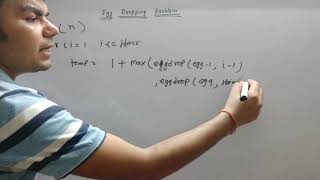 Egg Dropping Problem
(n)
r i = 1 i <= floor
temp = 1 + max(eggdrop(egg-1, i-1)
, eggdrop(egg,